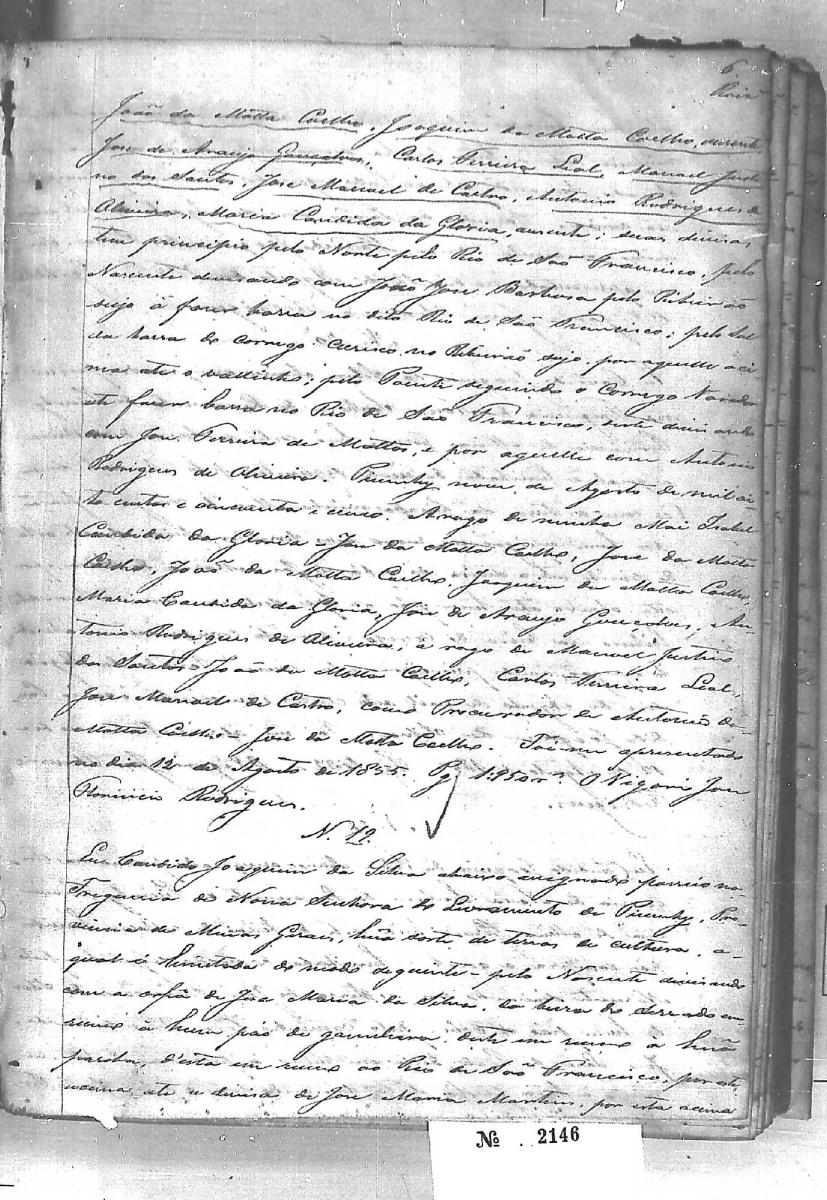 6
João da Motta Coelho, Joaquim da Motta Coelho, auzente,
Jose de Araujo Gonçalves, Carlos Ferreira Leal, Manoel Justi
no dos Santos, Jose Manoel de Castro, Antonio Rodrigues de
Oliveira, Maria Candida da Gloria, auzente; suas divisas
tem principio pelo Norte pelo Rio de São Francisco, pelo
Nascente devisando com João Jose Barbosa pelo Ribeirão
sujo á fazer barra no dito Rio de São Francisco; pelo Sul
da barra do corrego no Ribeirão sujo, por aquelle aci
ma até o vallinho; pelo Poente seguindo o Corrego
até fazer barra no Rio de São Francisco, devisando
com Jose Ferreira de Mattos, e por aquelle com Antonio
Rodrigues de Oliveira. Piumhy nove de Agosto de mil oi
to centos e cincoenta e cinco. Arogo de minha Mai Izabel
Candida da Gloria - Jose da Motta Coelho, Jose da Motta
Coelho, João da Motta Coelho, Joaquim da Motta Coelho,
Maria Candida da Gloria, Jose de Araujo Gonçalves, An-
tonio Rodrigues de Oliveira, a rogo de Manoel Justino
dos Santos João da Motta Coelho, Carlos Ferreira Leal,
Jose Manoel de Castro, como Procurador de Antonio da
Motta Coelho - Jose da Motta Coelho. Foi-me apresentado
no dia 12 de Agosto de 1855. Pg 1:950 rs. O Vigario Jose
Florencio Rodrigues.
N. 19.
Eu Candido Joaquim da Silva abaixo assignado possuo na
Freguezia de Nossa Senhora do Livramento de Piumhy, Pro-
vincia de Minas Geraes, huã sorte de terras de cultura, a-
qual é limitada do modo seguinte - pelo Nascente devisando
com a de Jose Maria da Silva, da do Serrado em
rumo á hum páo de gamelleira, deste em rumo a huã
d'esta em rumo ao Rio de São Francisco, por este
acima até a divisa de Jose Maria Martins, por esta acima
Nº 2146